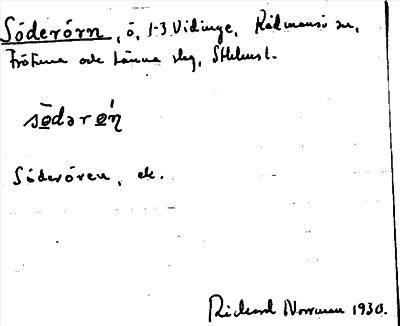 Söderörn, ö, 1-3 Vidinge, Rådmansö sn,
Frötuna och Länna slg, Sthlmsl.
södərǿŋ
Söderören, ek.
Rickard Norrman 1930.